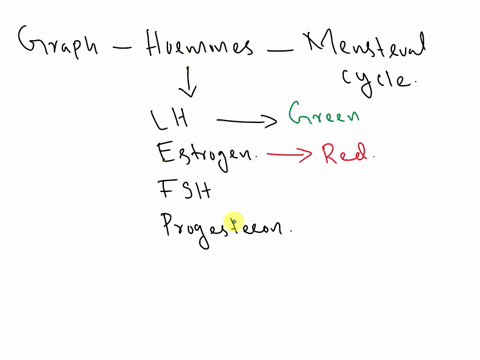 Graph - Hormones - Menstrual
cycle.
LH → Green
Estrogen. → Red.
FSH
Progesteron.